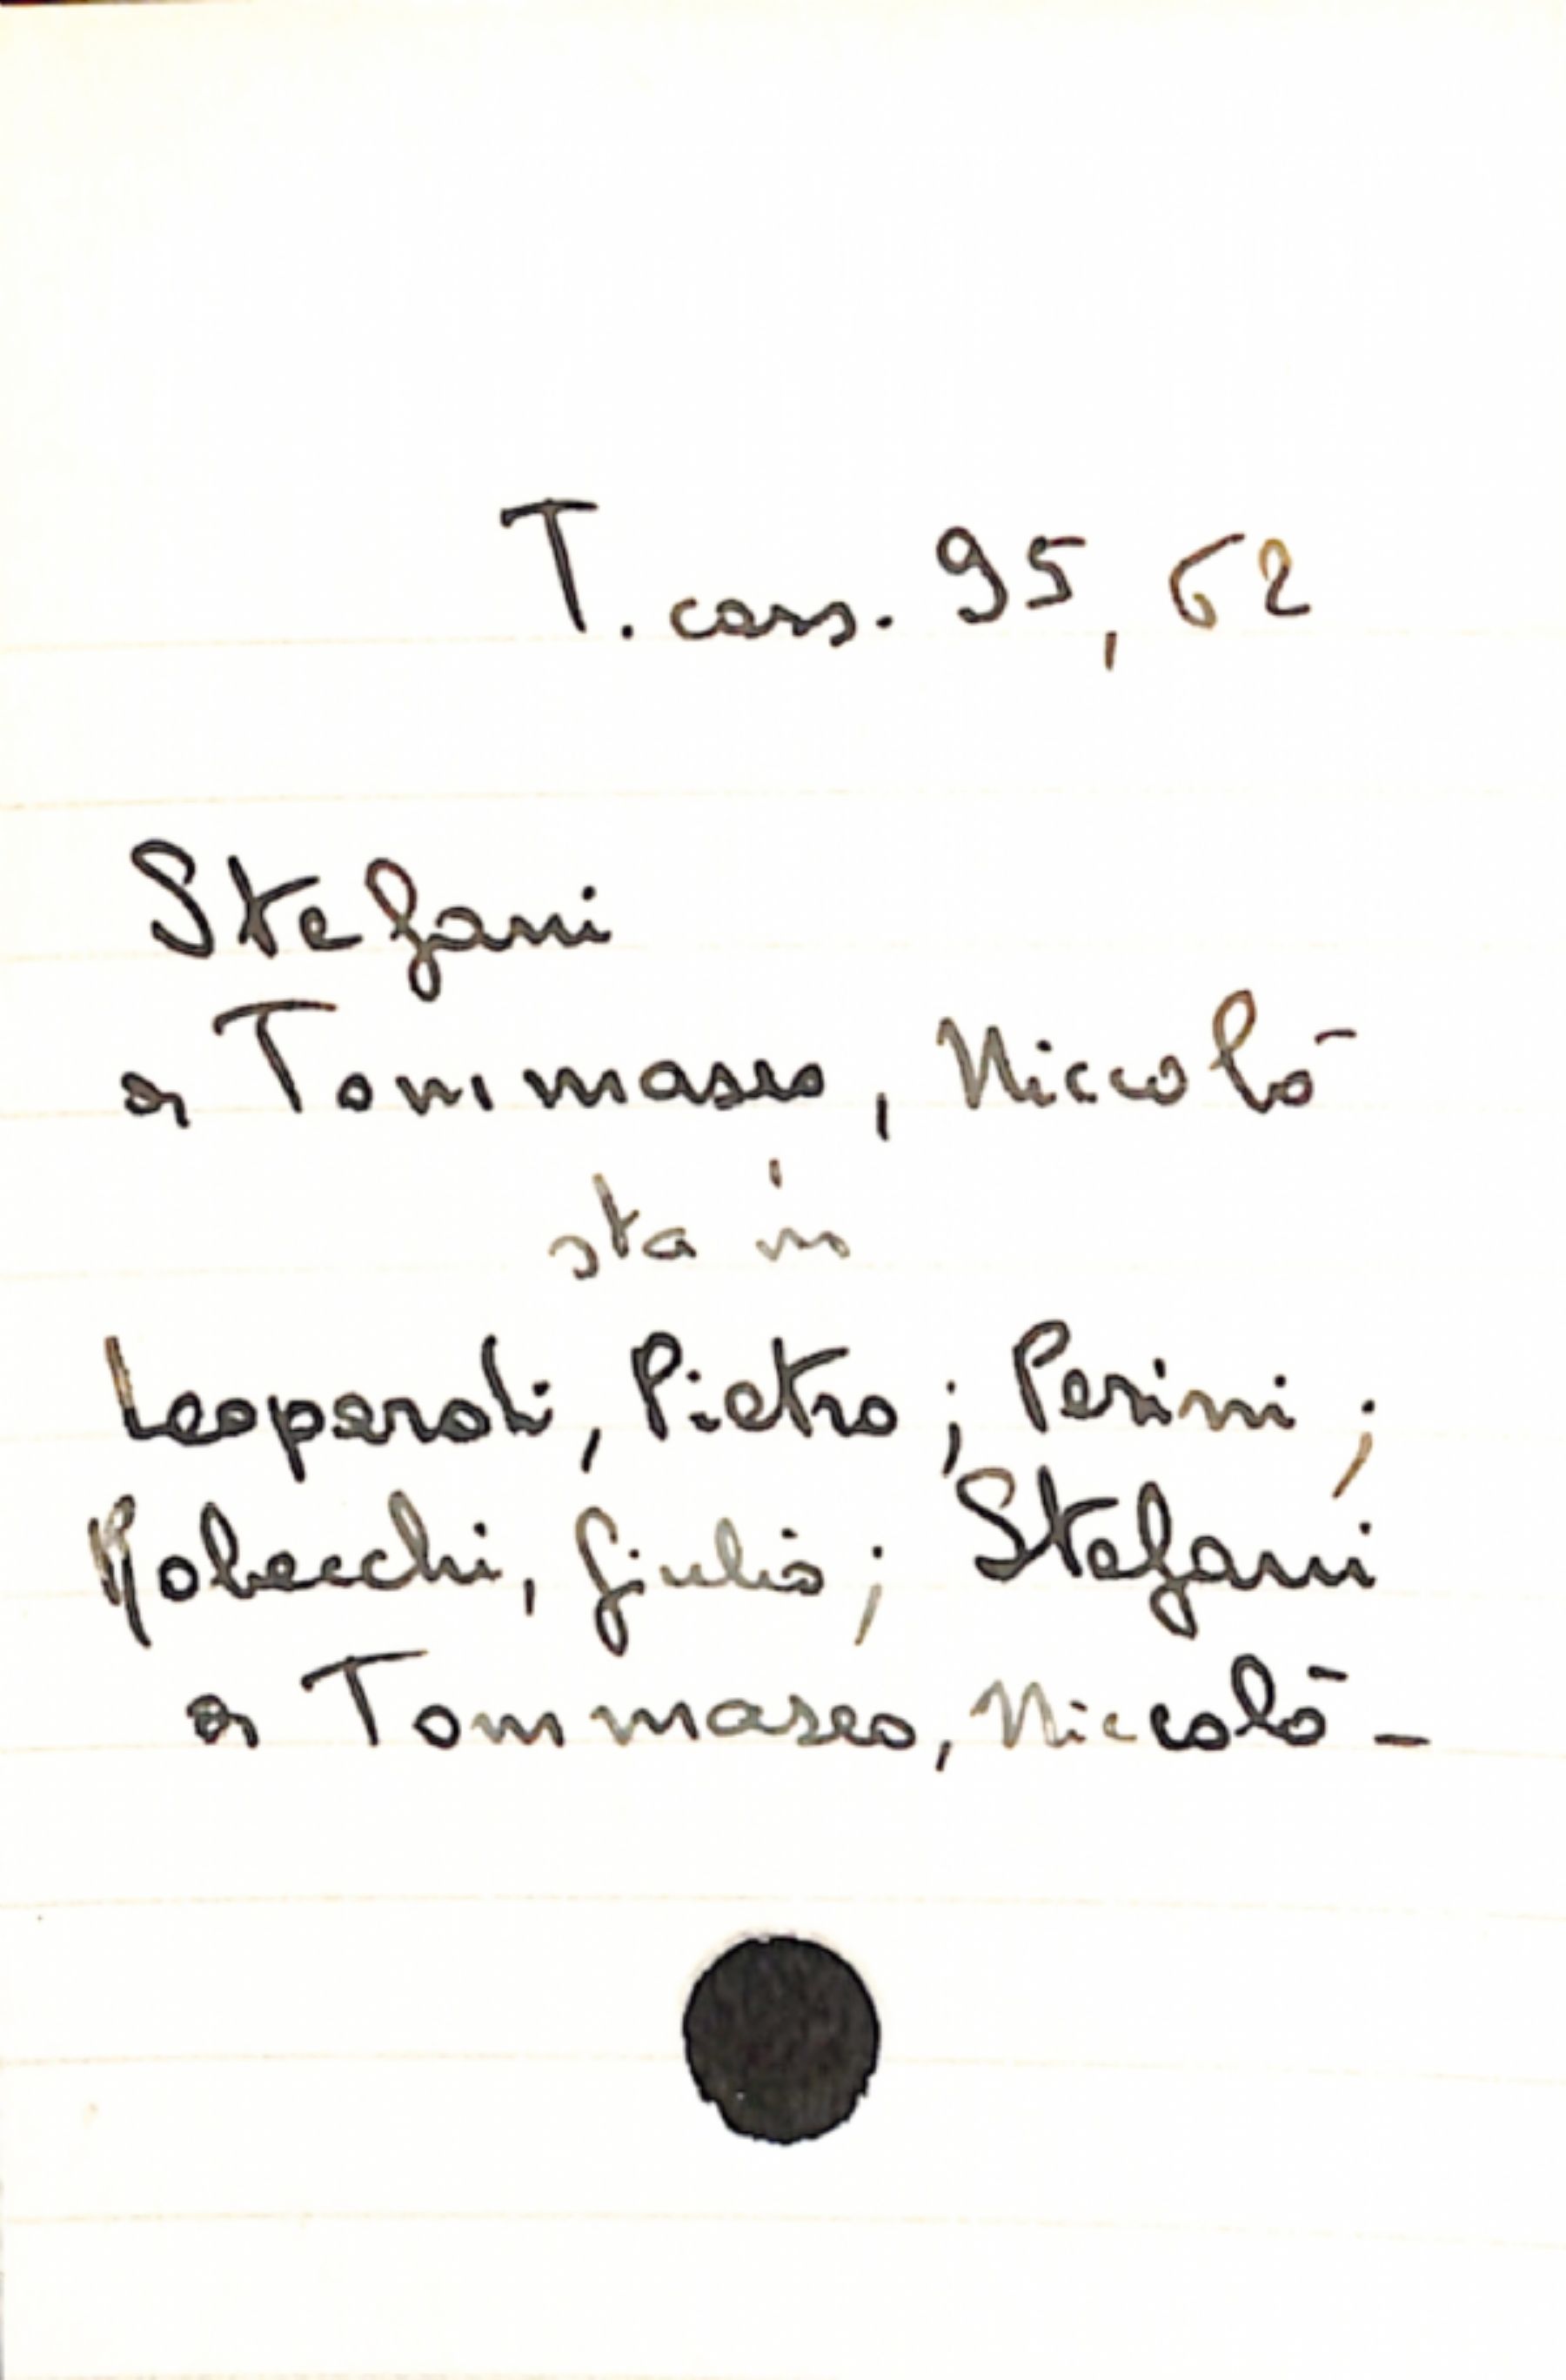 T. cass. 95, 62
Stefani
a Tommaseo, Niccolò
sta in
Leopardi, Pietro; Perini;
Robecchi, Giulio; Stefani
a Tommaseo, Niccolò -